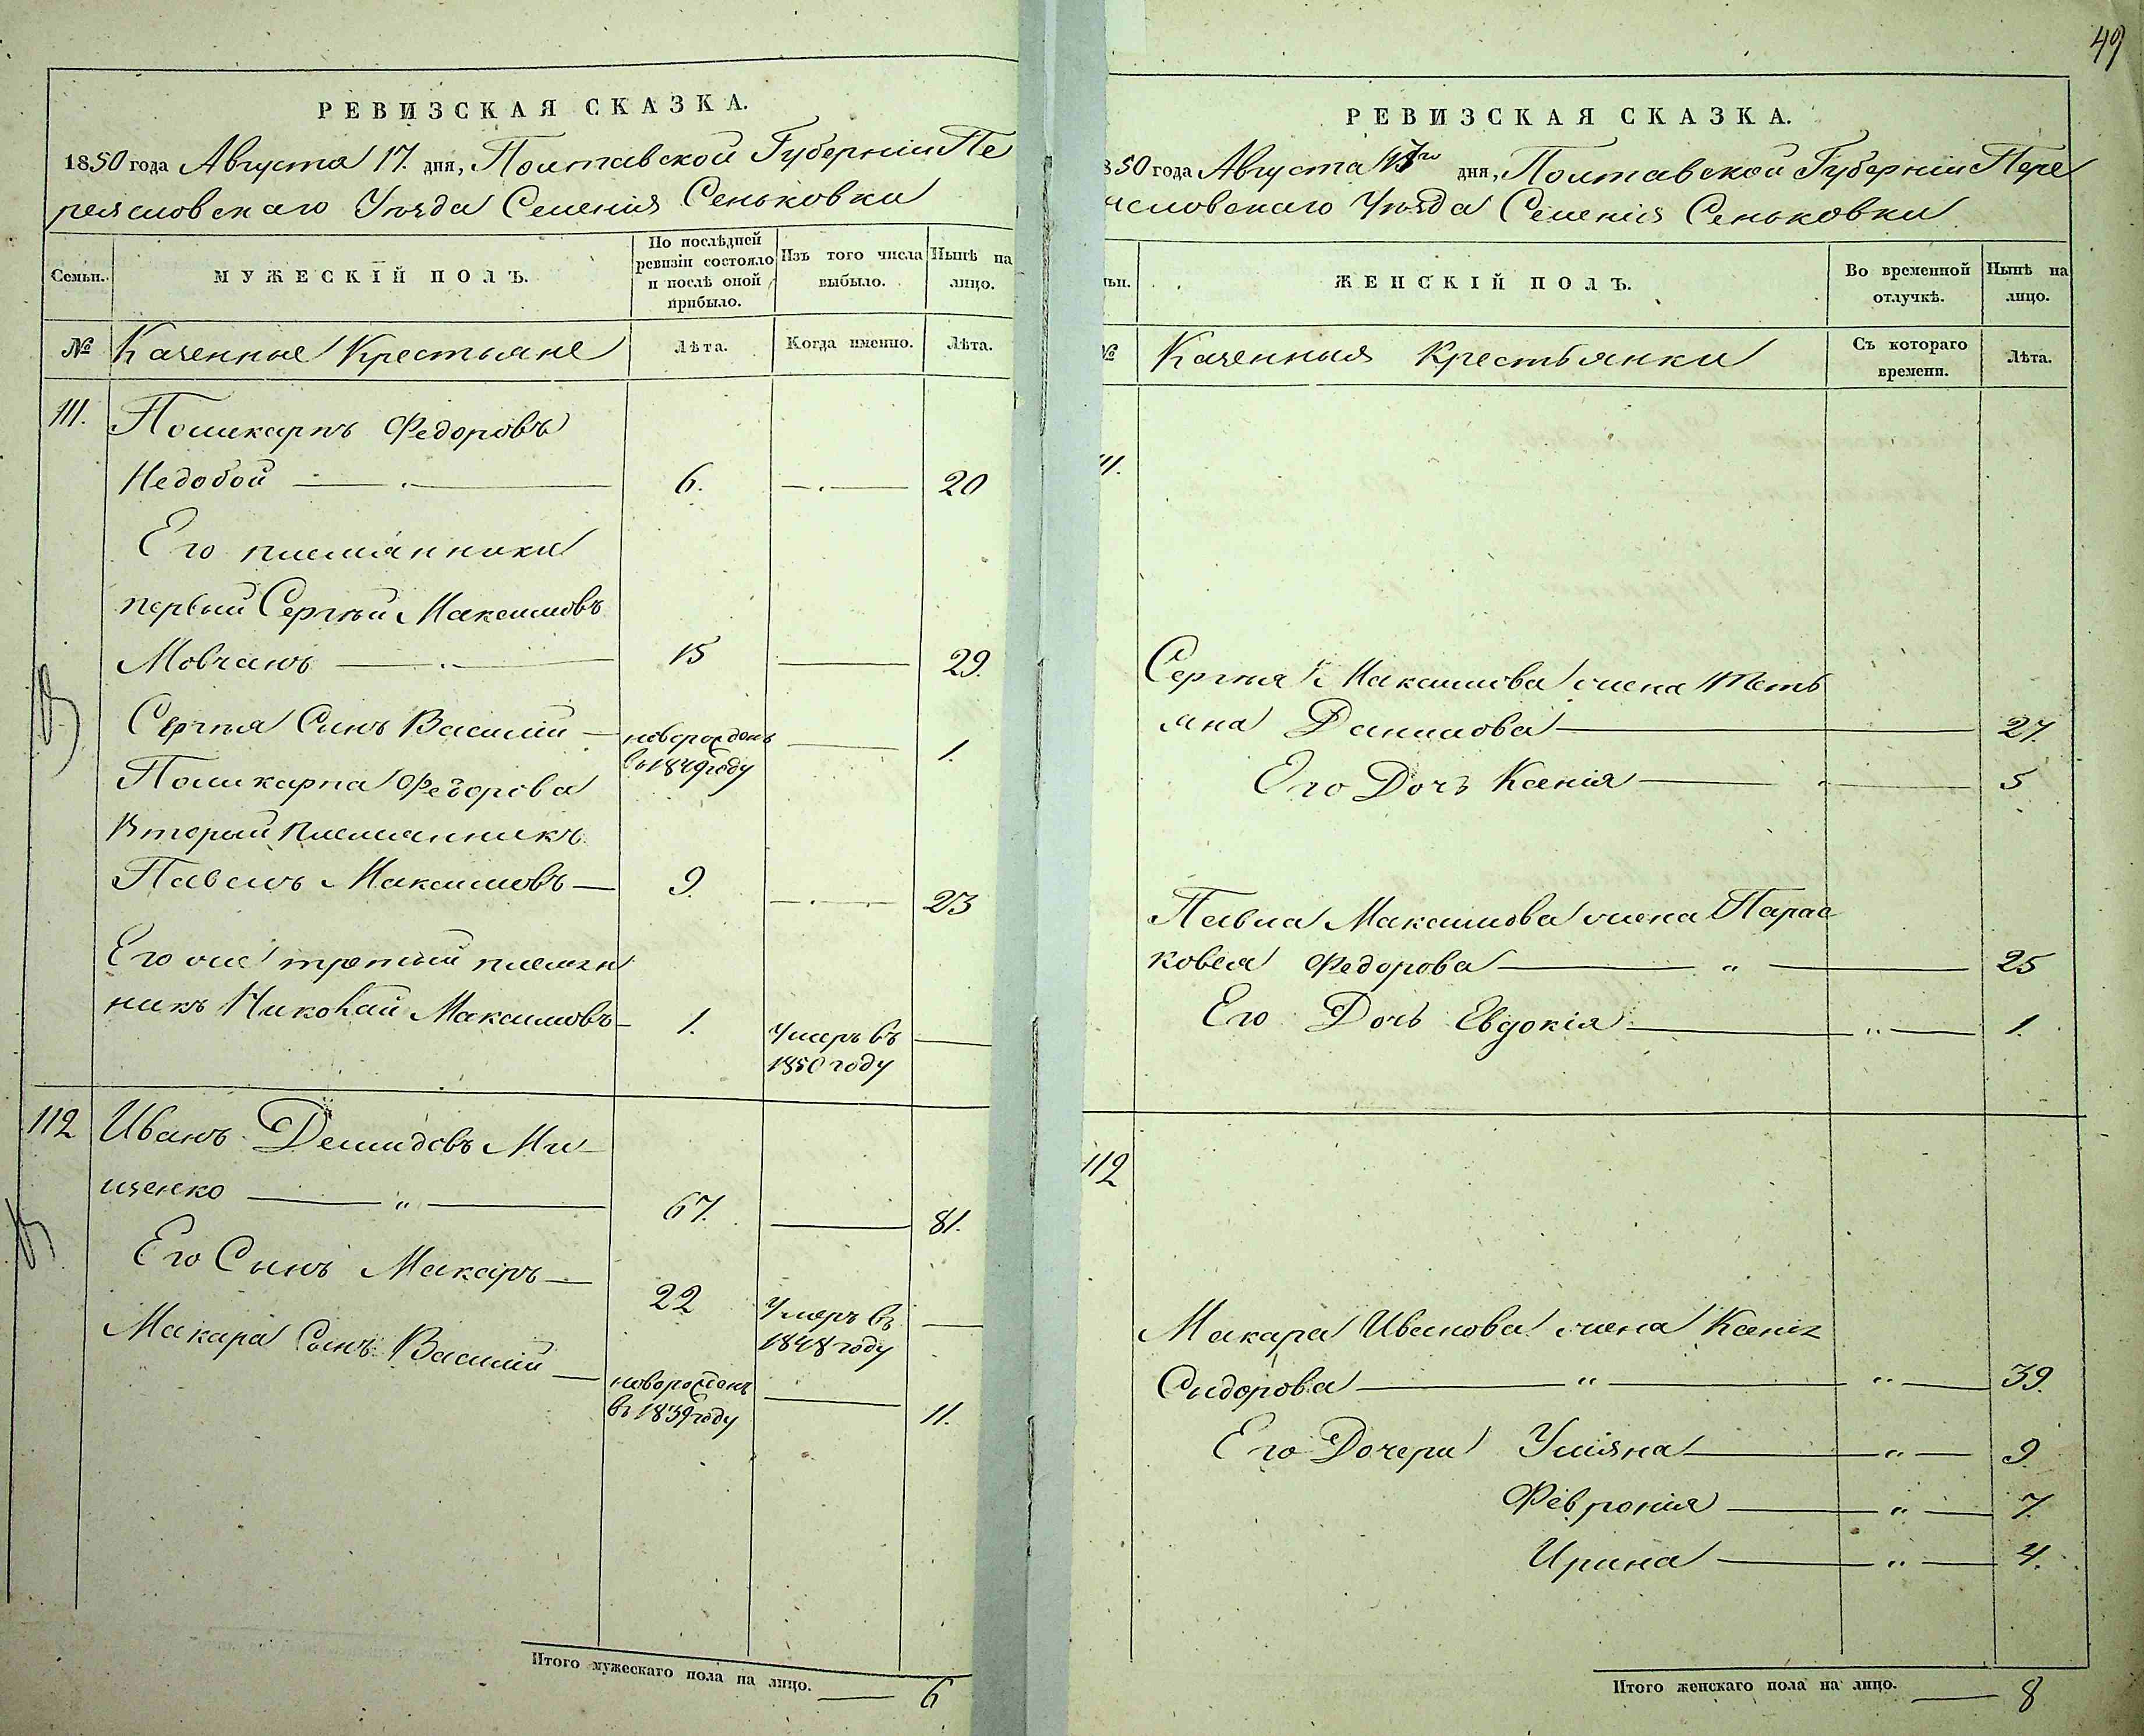 49
РЕВИЗСКАЯ СКАЗКА.
1850 года Августа 17. дня, Полтавской Губерніи Пе
реяславскаго Уѣзда Селенія Сеньковки
Семьи.
МУЖЕСКІЙ ПОЛЪ.
По послѣдней ревизіи состояло и послѣ оной прибыло.
Изъ того числа выбыло.
Нынѣ на лицо.
№
Казенные Крестьяне
Лѣта.
Когда именно.
Лѣта.
111. Поликарпъ Федоровъ
Недобой 6. 20
Его племянники
первый Сергѣй Максимовъ
Мовчанъ 15 29.
Сергѣя Сынъ Василий новорожденъ 1.
въ 1849 году
Поликарпа Федорова
Вторый племянникъ
Павелъ Максимовъ 9. 23
Его же третий племян
никъ Николай Максимовъ 1. Умеръ въ
1850 году
112 Иванъ Демидовъ Ми
щенко 67. 81.
Его Сынъ Макаръ 22 Умеръ въ
1848 году
Макара Сынъ Василій новорожденъ
въ 1839 году 11.
Итого мужескаго пола на лицо. 6
РЕВИЗСКАЯ СКАЗКА.
850 года Августа 17го дня, Полтавской Губерніи Пере
яславскаго Уѣзда Селенія Сеньковки
ьи.
ЖЕНСКІЙ ПОЛЪ.
Во временной отлучкѣ.
Нынѣ на лицо.
№
Казенныя Крестьянки
Съ котораго времени.
Лѣта.
111.
Сергѣя Максимова жена Теть
яна Данилова 27.
Его Дочь Ксенія 5
Павла Максимова жена Парас
ковея Федорова 25
Его Дочь Евдокія 1.
112
Макара Иванова жена Ксенія
Сидорова 39.
Его Дочери Уліяна 9.
Февронія 7.
Ирина 4.
Итого женскаго пола на лицо. 8